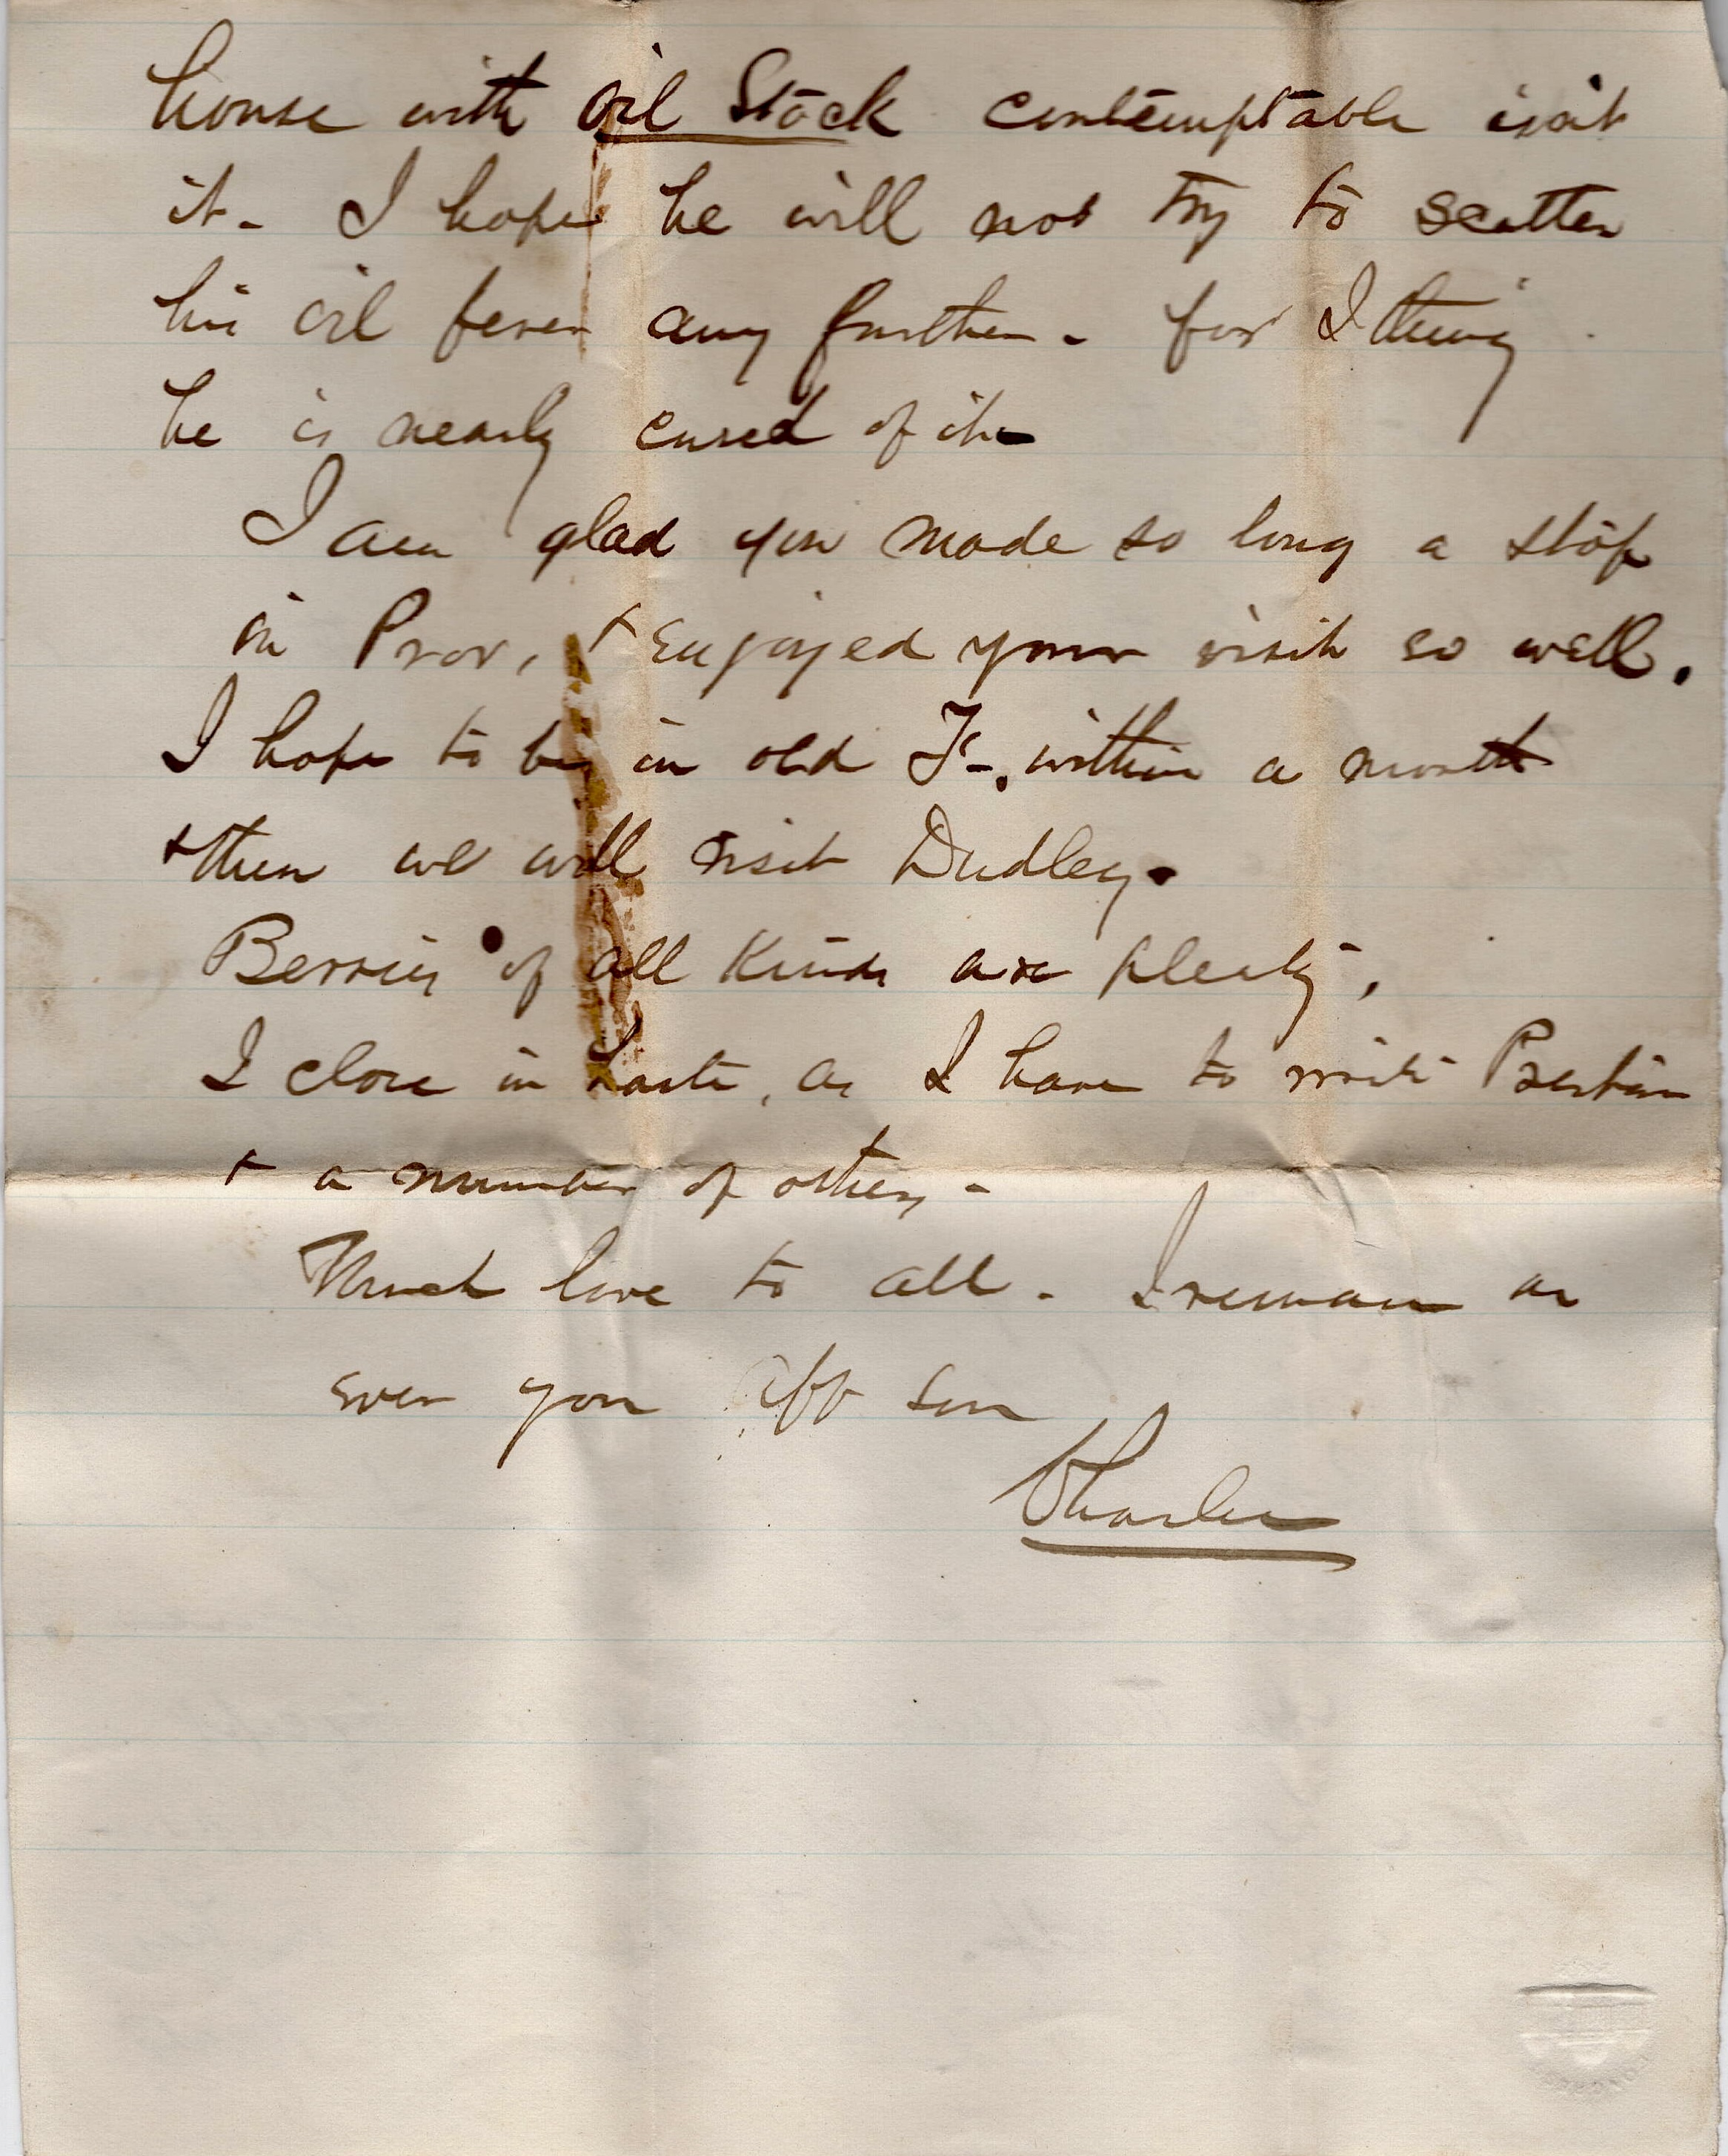 house with oil Stock contemptable isn't
it - I hope he will not try to scatter
his oil fever any further - for I think
he is nearly cured of it -
I am glad you made so long a stop
in Prov, + enjoyed your visit so well.
I hope to be in old T-. within a month
+ then we will visit Dudley.
Berries of all Kinds are plenty,
I close in haste, as I have to write
+ a number of others -
Much love to all - I remain as
ever your aff son
Charles